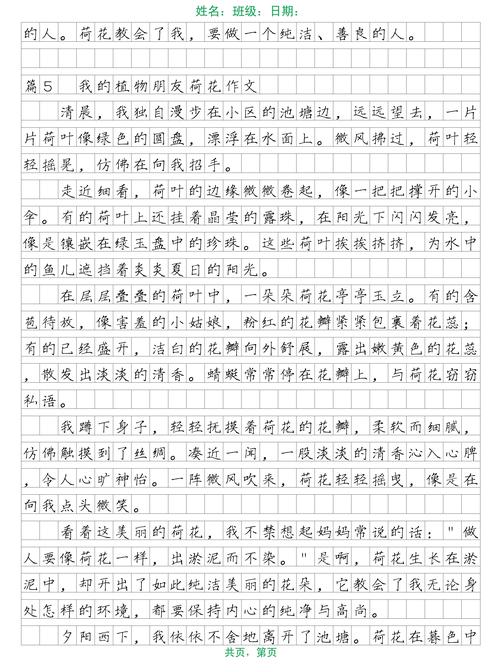 姓名：班级：日期：
的人。荷花教会了我，要做一个纯洁、善良的人。
篇5 我的植物朋友荷花作文
清晨，我独自漫步在小区的池塘边，远远望去，一片
片荷叶像绿色的圆盘，漂浮在水面上。微风拂过，荷叶轻
轻摇晃，仿佛在向我招手。
走近细看，荷叶的边缘微微卷起，像一把把撑开的小
伞。有的荷叶上还挂着晶莹的露珠，在阳光下闪闪发亮，
像是镶嵌在绿玉盘中的珍珠。这些荷叶挨挨挤挤，为水中
的鱼儿遮挡着炎炎夏日的阳光。
在层层叠叠的荷叶中，一朵朵荷花亭亭玉立。有的含
苞待放，像害羞的小姑娘，粉红的花瓣紧紧包裹着花蕊；
有的已经盛开，洁白的花瓣向外舒展，露出嫩黄色的花蕊
，散发出淡淡的清香。蜻蜓常常停在花瓣上，与荷花窃窃
私语。
我蹲下身子，轻轻抚摸着荷花的花瓣，柔软而细腻，
仿佛触摸到了丝绸。凑近一闻，一股淡淡的清香沁入心脾
，令人心旷神怡。一阵微风吹来，荷花轻轻摇曳，像是在
向我点头微笑。
看着这美丽的荷花，我不禁想起妈妈常说的话："做
人要像荷花一样，出淤泥而不染。"是啊，荷花生长在淤
泥中，却开出了如此纯洁美丽的花朵，它教会了我无论身
处怎样的环境，都要保持内心的纯净与高尚。
夕阳西下，我依依不舍地离开了池塘。荷花在暮色中
共页，第页